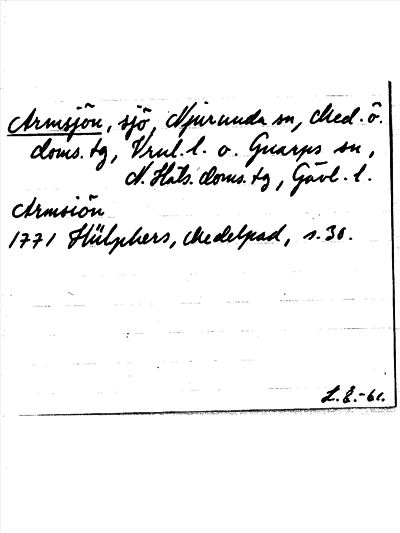 Armsjön, sjö, Njurunda sn, Med. ö.
doms. tg, Vnrl. l. o. Gnarps sn,
N. Häls. doms. tg, Gävl. l.
Armsiön
1771 Hülphers, Medelpad, s. 30.
L. E. -61.